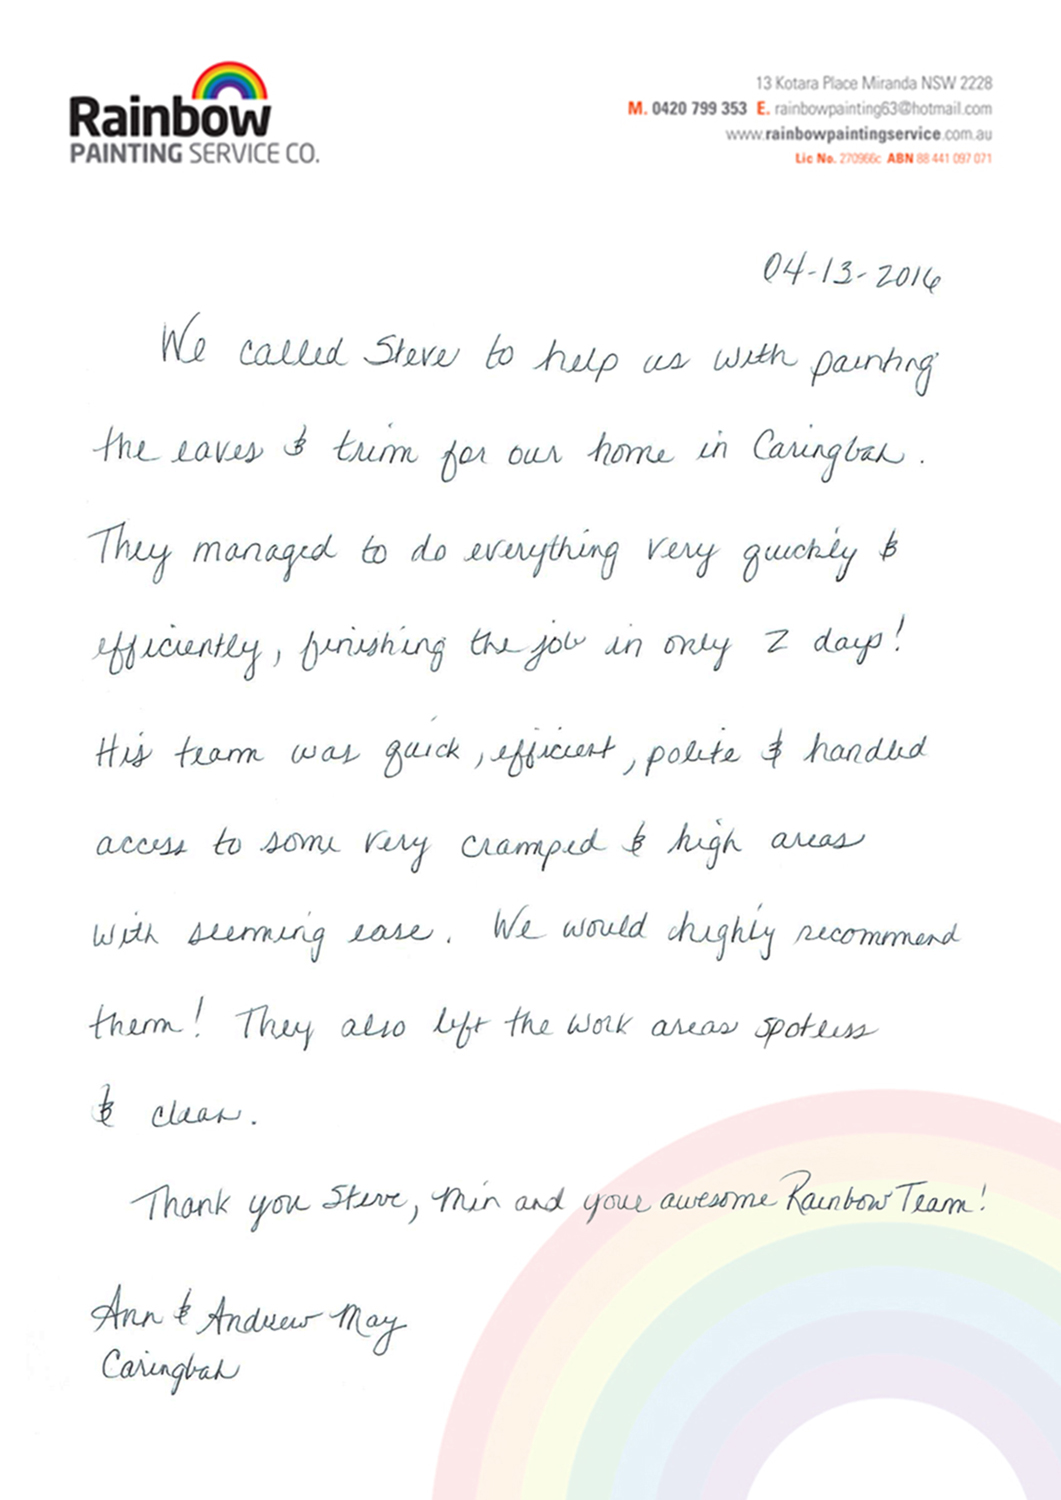 Rainbow
PAINTING SERVICE CO.
13 Kotara Place Miranda NSW 2228
M. 0420 799 353 E. rainbowpainting63@hotmail.com
www.rainbowpaintingservice.com.au
Lic No. 270966c ABN 88 441 097 071
04-13-2016
We called Steve to help us with painting
the eaves & trim for our home in Caringbah.
They managed to do everything very quickly &
efficiently, finishing the job in only 2 days!
His team was quick, efficient, polite & handled
access to some very cramped & high areas
with seeming ease. We would highly recommend
them! They also left the work areas spotless
& clean.
Thank you Steve, Min and your awesome Rainbow Team!
Ann & Andrew May
Caringbah